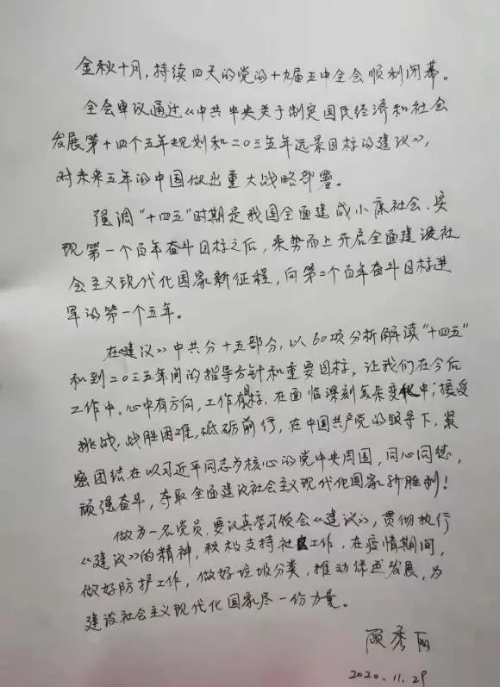 金秋十月，持续四天的党的十九届五中全会顺利闭幕。
全会审议通过《中共中央关于制定国民经济和社会
发展第十四个五年规划和二〇三五年远景目标的建议》，
对未来五年的中国做出重大战略部署。
强调"十四五"时期是我国全面建成小康社会、实
现第一个百年奋斗目标之后，乘势而上开启全面建设社
会主义现代化国家新征程，向第二个百年奋斗目标进
军的第一个五年。
在《建议》中共分十五部分，以60项分析解读"十四五"
和到二〇三五年间的指导方针和重要目标，让我们在今后
工作中，心中有方向，工作有，在面临深刻复杂变化中；接受
挑战，战胜困难，砥砺前行，在中国共产党的领导下，紧
密团结在以习近平同志为核心的党中央周围，同心同德，
顽强奋斗，夺取全面建设社会主义现代化国家新胜利！
做为一名党员，要认真学习领会《建议》，贯彻执行
《建议》的精神，积极支持社区工作，在疫情期间，
做好防护工作，做好垃圾分类，推动绿色发展，为
建设社会主义现代化国家尽一份力量。
顾秀丽
2020.11.29